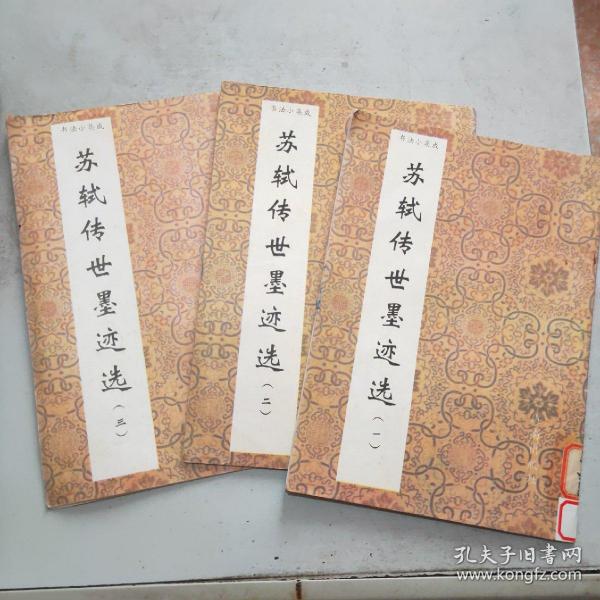 书法小集成
苏轼传世墨迹选
(三)
书法小集成
苏轼传世墨迹选
(二)
书法小集成
苏轼传世墨迹选
(一)
孔夫子旧书网
www.kongfz.com